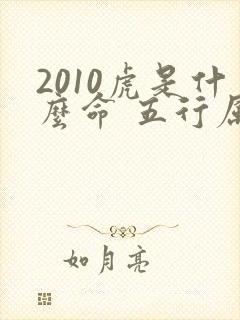 2010虎是什
麼命 五行属
如月亮